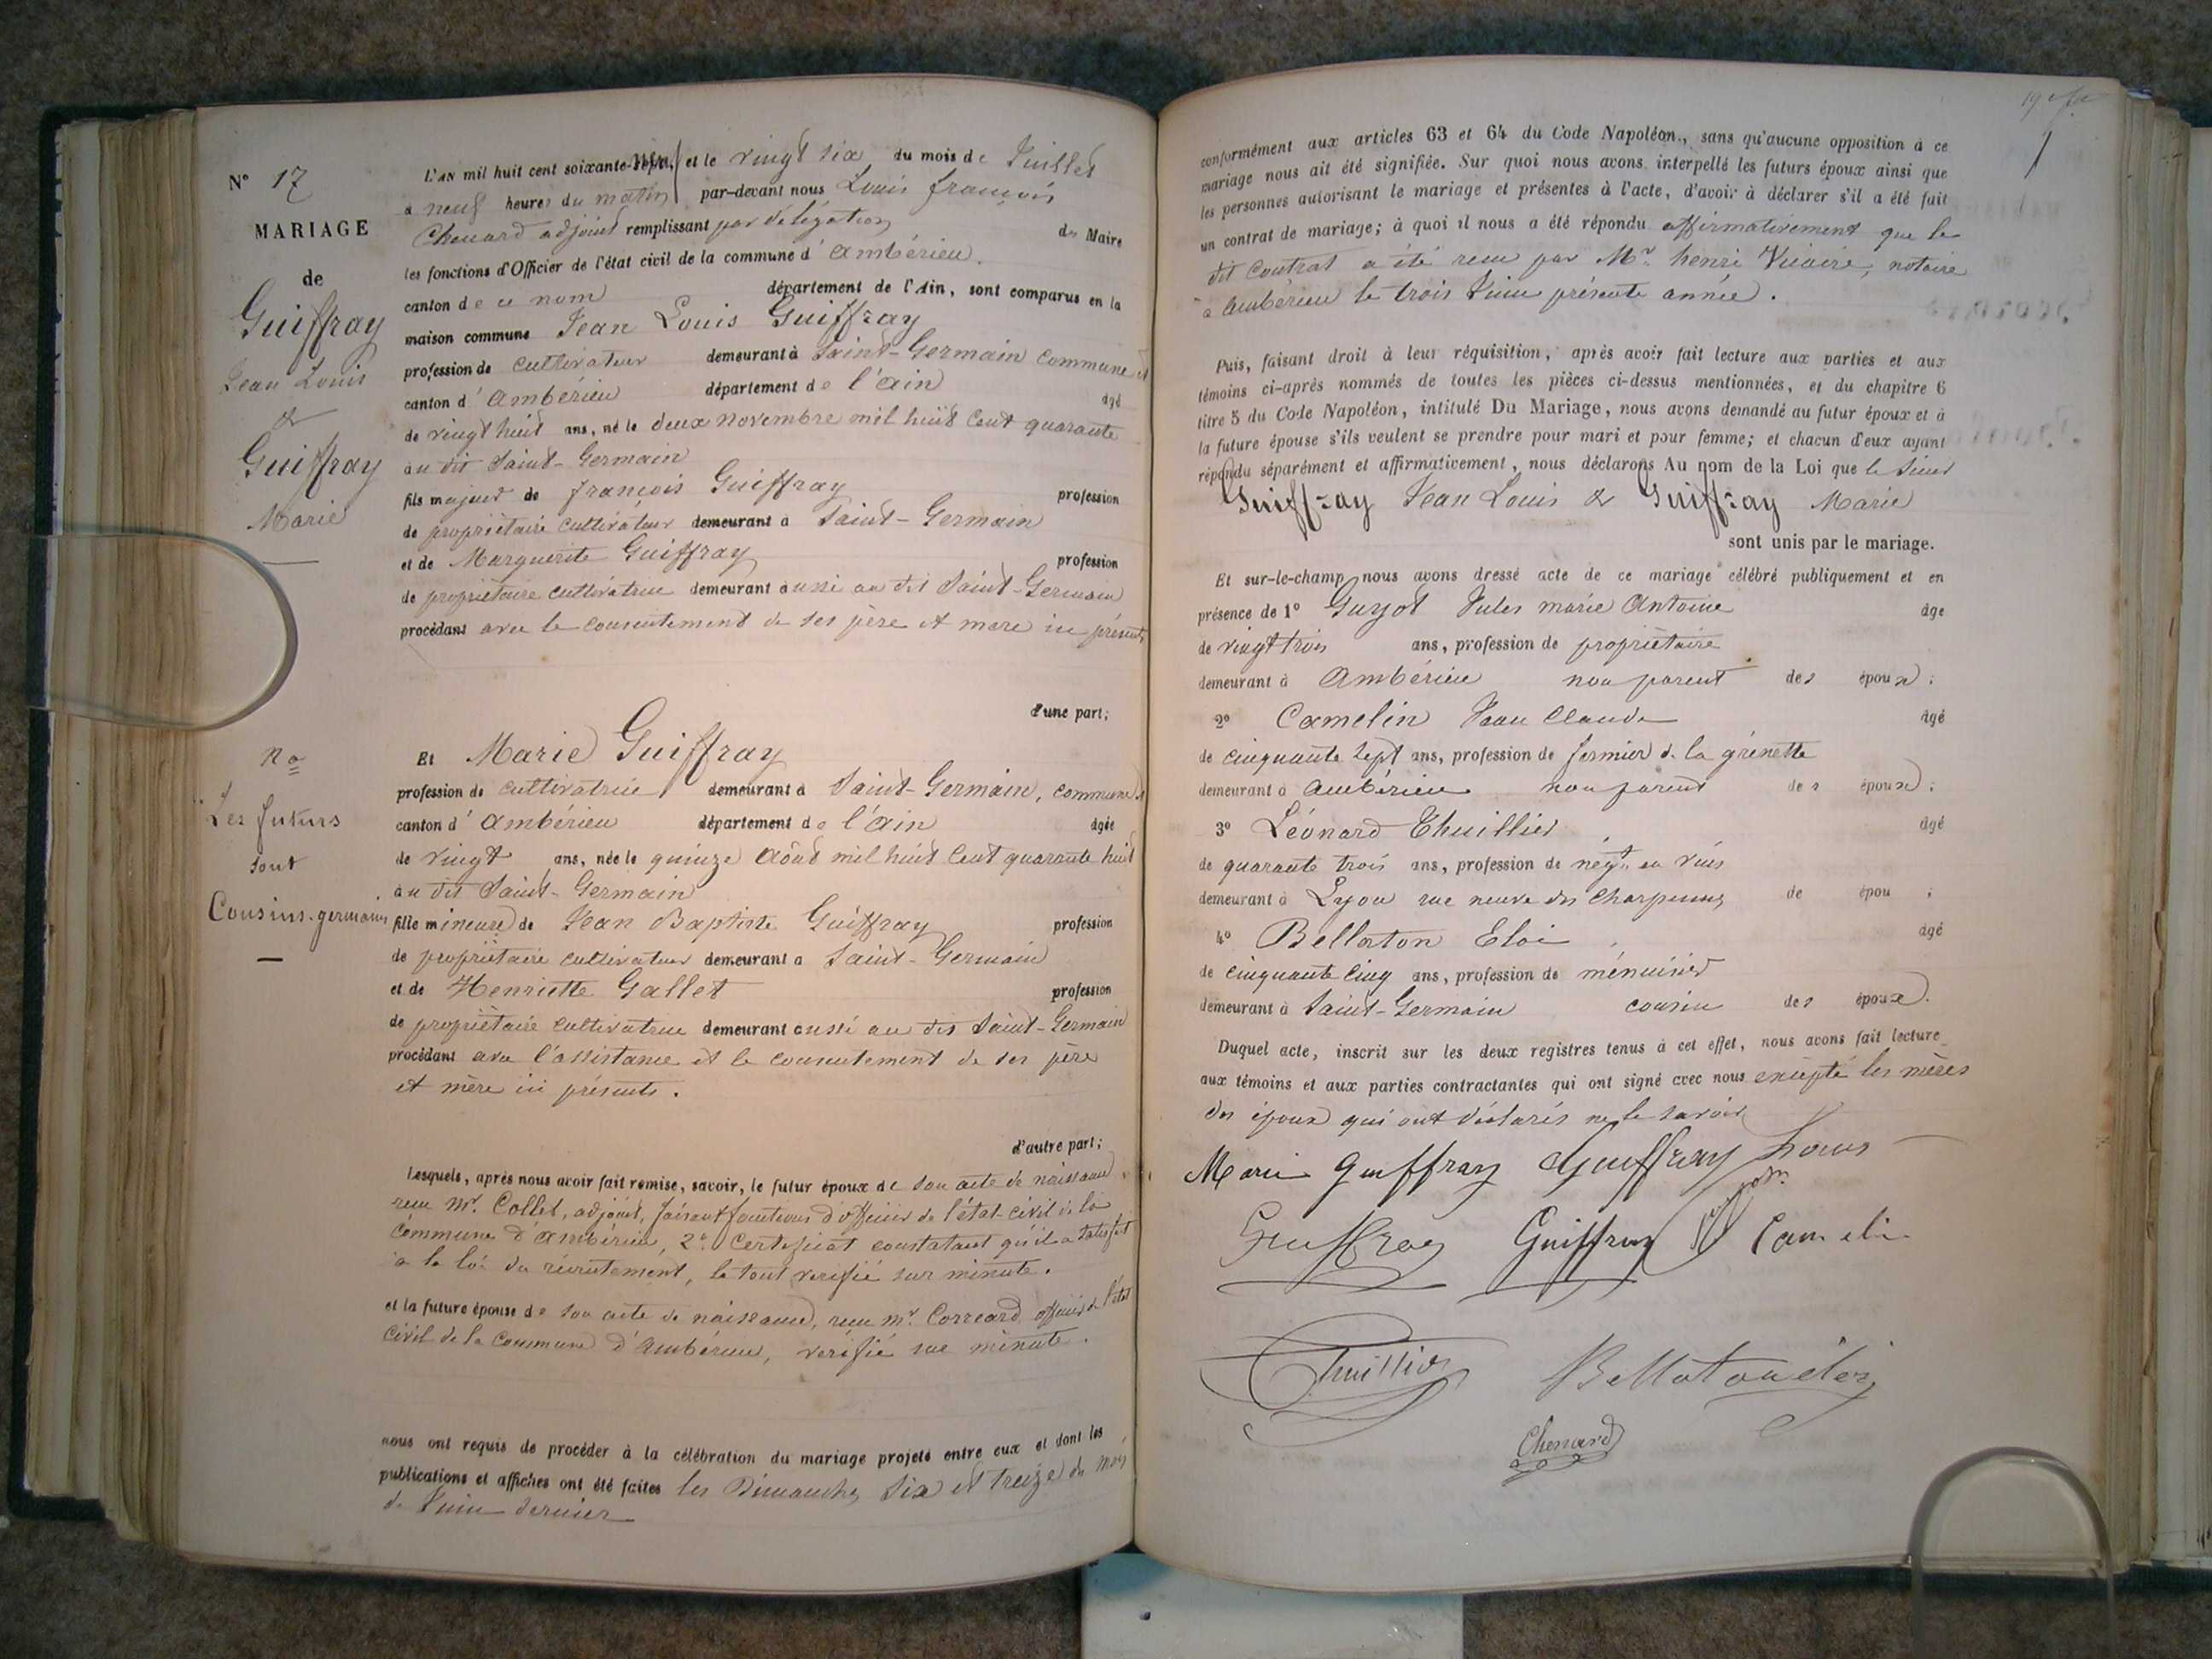 N° 17
MARIAGE
de
Guiffray
Jean Louis
&
Guiffray
Marie
Na
Les futurs
sont
Cousins-germains
L'AN mil huit cent soixante-neuf, et le vingt six du mois de Juillet
à neuf heures du matin par-devant nous Louis françois
Chenard adjoint remplissant par délégation du Maire
les fonctions d'Officier de l'état civil de la commune d'Ambérieu.
canton de ce nom département de l'Ain, sont comparus en la
maison commune Jean Louis Guiffray
profession de cultivateur demeurant à Saint-Germain commune et
canton d'Ambérieu département de l'Ain âgé
de vingt huit ans, né le deux novembre mil huit cent quarante
au dit Saint-Germain
fils majeur de françois Guiffray profession
de propriétaire cultivateur demeurant à Saint-Germain
et de Marguerite Guiffray profession
de propriétaire cultivatrice demeurant aussi au dit Saint-Germain
procédant avec le consentement de ses père et mère ici présents
d'une part;
Et Marie Guiffray
profession de cultivatrice demeurant à Saint-Germain, commune et
canton d'Ambérieu département de l'Ain âgée
de vingt ans, née le quinze Août mil huit cent quarante huit
au dit Saint-Germain
fille mineure de Jean Baptiste Guiffray profession
de propriétaire cultivateur demeurant à Saint-Germain
et de Henriette Gallet profession
de propriétaire cultivatrice demeurant aussi au dit Saint-Germain
procédant avec l'assistance et le consentement de ses père
et mère ici présents.
d'autre part;
Lesquels, après nous avoir fait remise, savoir, le futur époux de son acte de naissance
reçu Mr. Collet, adjoint, faisant fonctions d'officier de l'état-civil de la
Commune d'Ambérieu, 2° Certificat constatant qu'il a satisfait
à la loi du recrutement, le tout vérifié sur minute.
et la future épouse de son acte de naissance, reçu Mr. Correard officier de l'état
civil de la Commune d'Ambérieu, vérifié sur minute.
nous ont requis de procéder à la célébration du mariage projeté entre eux et dont les
publications et affiches ont été faites les Dimanches Six et treize du mois
de Juin dernier
conformément aux articles 63 et 64 du Code Napoléon., sans qu'aucune opposition à ce
mariage nous ait été signifiée. Sur quoi nous avons interpellé les futurs époux ainsi que
les personnes autorisant le mariage et présentes à l'acte, d'avoir à déclarer s'il a été fait
un contrat de mariage; à quoi il nous a été répondu affirmativement que le
dit contrat a été reçu par Mr. henri Vicaire, notaire
à Ambérieu le trois Juin présente année.
Puis, faisant droit à leur réquisition, après avoir fait lecture aux parties et aux
témoins ci-après nommés de toutes les pièces ci-dessus mentionnées, et du chapitre 6
titre 5 du Code Napoléon, intitulé Du Mariage, nous avons demandé au futur époux et à
la future épouse s'ils veulent se prendre pour mari et pour femme; et chacun d'eux ayant
répondu séparément et affirmativement, nous déclarons Au nom de la Loi que le Sieur
Guiffray Jean Louis & Guiffray Marie
sont unis par le mariage.
Et sur-le-champ nous avons dressé acte de ce mariage célébré publiquement et en
présence de 1° Guyot Jules marie Antoine âgé
de vingt trois ans, profession de propriétaire
demeurant à Ambérieu non parent des époux;
2° Camelin Jean Claude âgé
de cinquante sept ans, profession de fermier de la grenette
demeurant à Ambérieu non parent des époux;
3° Léonard Thuillier âgé
de quarante trois ans, profession de négt. en vins
demeurant à Lyon rue neuve des Charpennes de épou ;
4° Bellaton Eloi âgé
de cinquante cinq ans, profession de ménuisier
demeurant à Saint-Germain cousin des époux.
Duquel acte, inscrit sur les deux registres tenus à cet effet, nous avons fait lecture
aux témoins et aux parties contractantes qui ont signé avec nous excepté les mères
des époux qui ont déclarés ne le savoir
Marie Guiffray Guiffray Louis
Guiffray Guiffray Camelin
Thuillier Bellaton éloi
Chenard